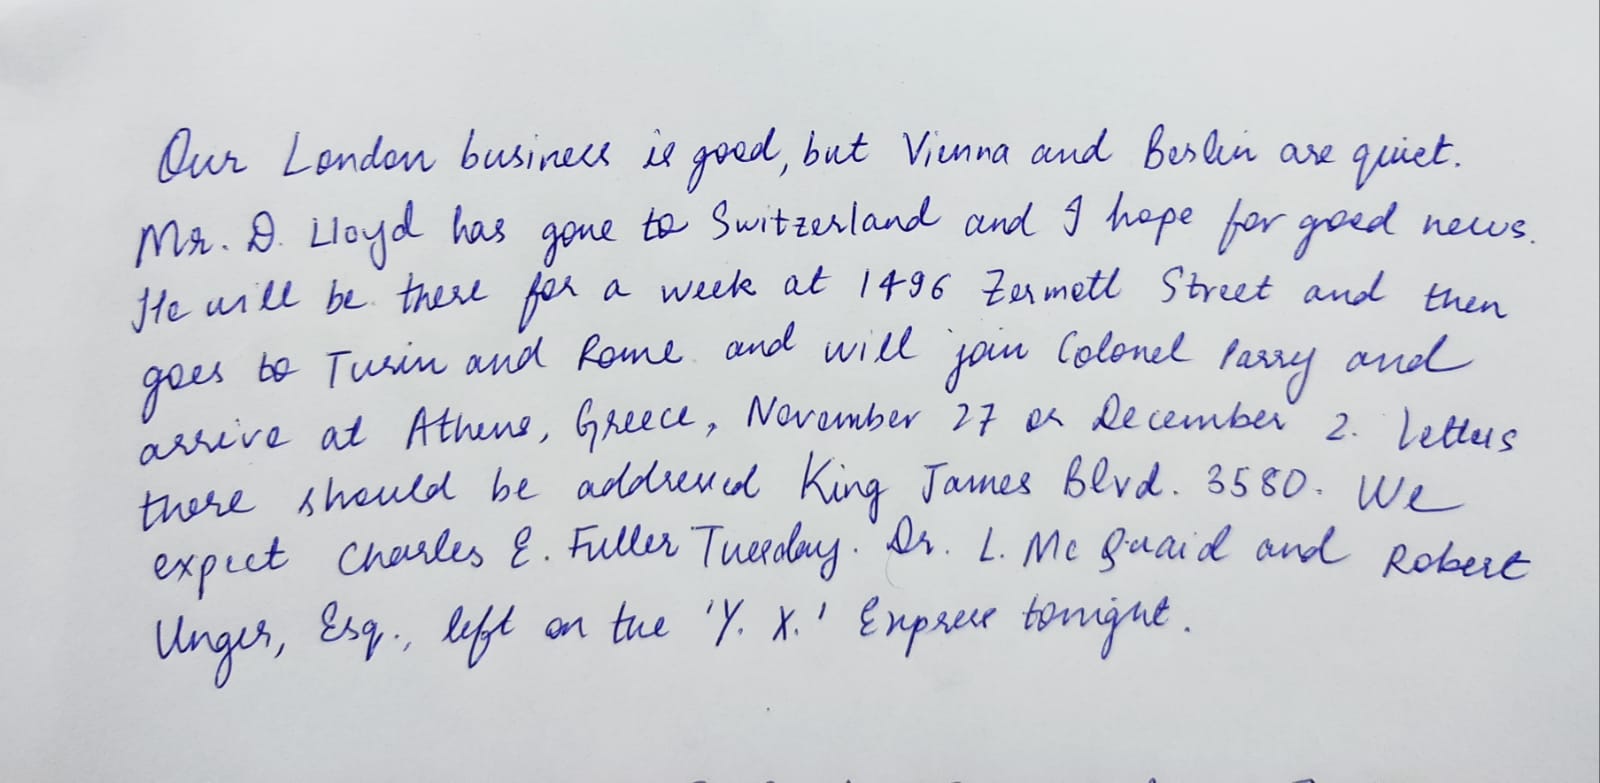 Our London business is good, but Vienna and Berlin are quiet.
Mr. D. Lloyd has gone to Switzerland and I hope for good news.
He will be there for a week at 1496 Zermott Street and then
goes to Turin and Rome and will join Colonel Parry and
arrive at Athens, Greece, November 27 or December 2. Letters
there should be addressed King James Blvd. 3580. We
expect Charles E. Fuller Tuesday. Dr. L. Mc Quaid and Robert
Unger, Esq., left on the 'Y. X.' Express tonight.